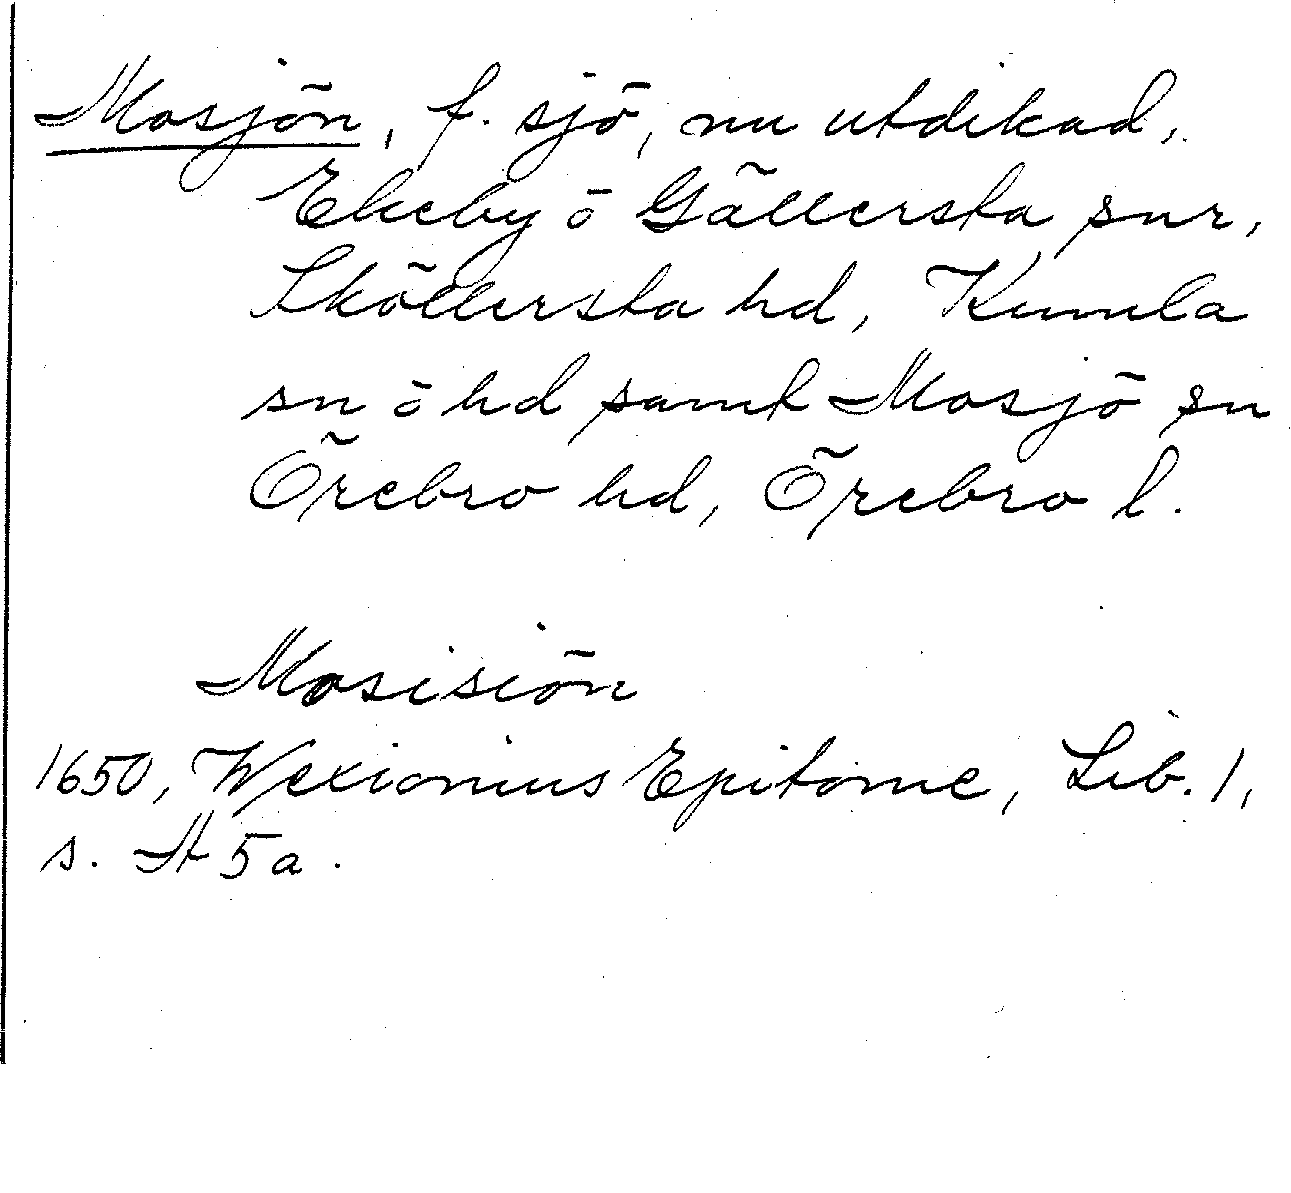 Mosjön, f. sjö, nu utdikad,
Ekeby o Gällersta snr,
Sköllersta hd, Kumla
sn o hd samt Mosjö sn
Örebro hd, Örebro l.
Mosisiön
1650, Wexionius Epitome, Lib. 1,
s. A 5 a.